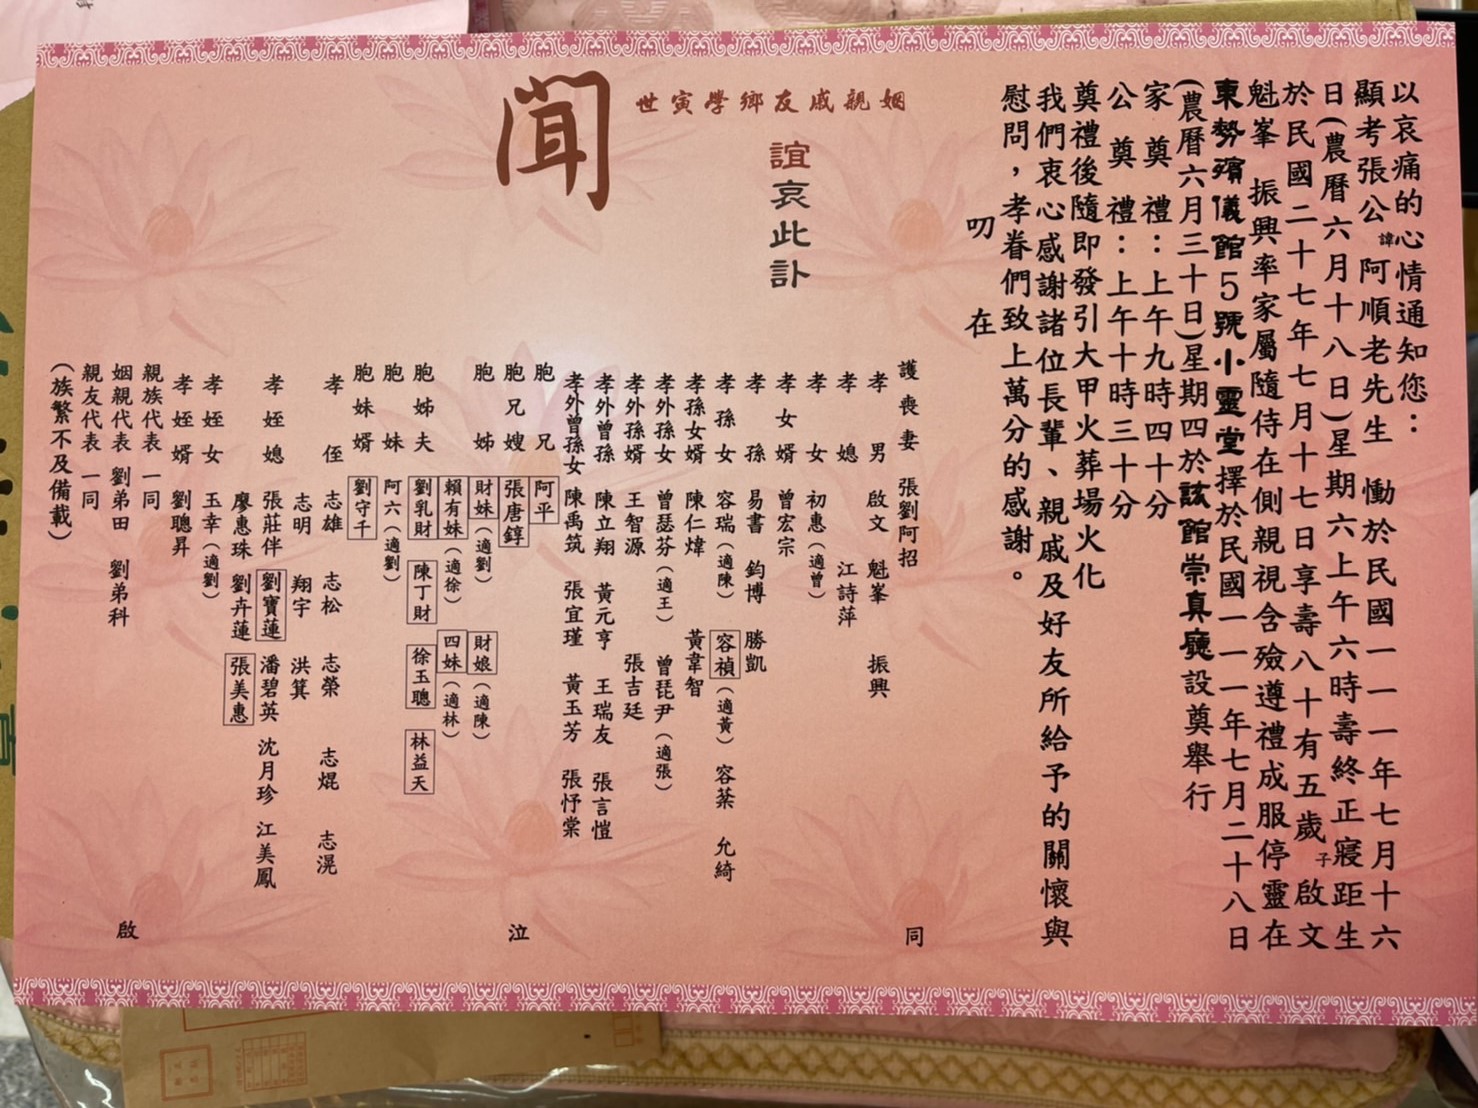 以哀痛的心情通知您：
顯考張公諱阿順老先生 慟於民國一一一年七月十六
日(農曆六月十八日)星期六上午六時壽終正寢距生
於民國二十七年七月十七日享壽八十有五歲 子啟文
魁峯 振興率家屬隨侍在側親視含殮遵禮成服停靈在
東勢殯儀館5號小靈堂擇於民國一一一年七月二十八日
(農曆六月三十日)星期四於該館崇真廳設奠舉行
家奠禮：上午九時四十分
公奠禮：上午十時三十分
奠禮後隨即發引大甲火葬場火化
我們衷心感謝諸位長輩、親戚及好友所給予的關懷與
慰問，孝眷們致上萬分的感謝。
叨在
姻親戚友鄉學寅世
誼哀此訃
聞
護喪妻 張劉阿招
孝男 啟文 魁峯 振興
孝媳 江詩萍
孝女 初惠(適曾)
孝女婿 曾宏宗
孝孫 易書 鈞博 勝凱
孝孫女 容瑞(適陳) 容禎(適黃) 容棻 允綺
孝孫女婿 陳仁煒 黃韋智
孝外孫女 曾瑟芬(適王) 曾琵尹(適張)
孝外孫婿 王智源 張吉廷
孝外曾孫 陳立翔 黃元亨 王瑞友 張言愷
孝外曾孫女 陳禹筑 張宜瑾 黃玉芳 張忬棠
胞兄 阿平
胞兄嫂 張唐錞
胞姊 財妹(適劉) 財娘(適陳)
賴有妹(適徐) 四妹(適林)
胞姊夫 劉乳財 陳丁財 徐玉聰 林益天
胞妹 阿六(適劉)
胞妹婿 劉守千
孝侄 志雄 志松 志榮 志焜 志滉
志明 翔宇 洪箕
孝姪媳 張莊伴 劉寶蓮 潘碧英 沈月珍 江美鳳
廖惠珠 劉卉蓮 張美惠
孝姪女 玉幸(適劉)
孝姪婿 劉聰昇
親族代表 一同
姻親代表 劉弟田 劉弟科
親友代表 一同
(族繁不及備載)
同
泣
啟